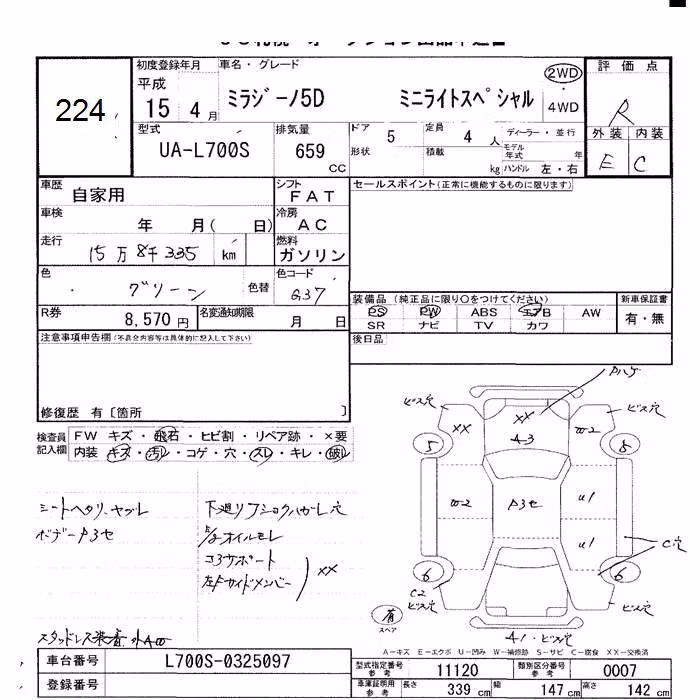 224
初度登録年月 車名・グレード 評価点
平成 15 4月 ミラジーノ5D ミニライトスペシャル 2WD 4WD R
型式 排気量 ドア 5 定員 4人 ディーラー・並行 外装 内装
UA-L700S 659 CC 形状 積載 kg モデル年式 年 ハンドル 左・右 E C
車歴 自家用 シフト FAT セールスポイント(正常に機能するものに限ります)
車検 年 月( 日) 冷房 AC
走行 15万8千335 km 燃料 ガソリン
色 グリーン 色替 色コード G37
装備品 (純正品に限り○をつけてください) 新車保証書
R券 8,570円 名変通知期限 月 日 PS PW ABS エアB AW 有・無
SR ナビ TV カワ
注意事項申告欄(不具合内容等は具体的に記入して下さい) 後日品
修復歴 有〔箇所 〕
検査員記入欄 FW キズ・飛石・ヒビ割・リペア跡・×要
内装 キズ・汚レ・コゲ・穴・スレ・キレ・破レ
シートヘタリ、ヤブレ
ボデーP3セ
下廻りフショクハガレ穴
オイルモレ
コアサポート
左Fサイドメンバー
XX
Pハゲ
ビス穴 XX XX W2 ビス穴
5 43 8
W2 P3セ U1
U1
C穴
6 6
C2
ビス穴 ビス穴
有 スペア
41・ビス穴
スタッドレス装着
A-キズ E-エクボ U-凹み W-補修跡 S-サビ C-腐食 XX-交換済
車台番号 L700S-0325097 型式指定番号 参考 11120 類別区分番号 参考 0007
登録番号 車庫証明用 参考 長さ 339 cm 幅 147 cm 高さ 142 cm